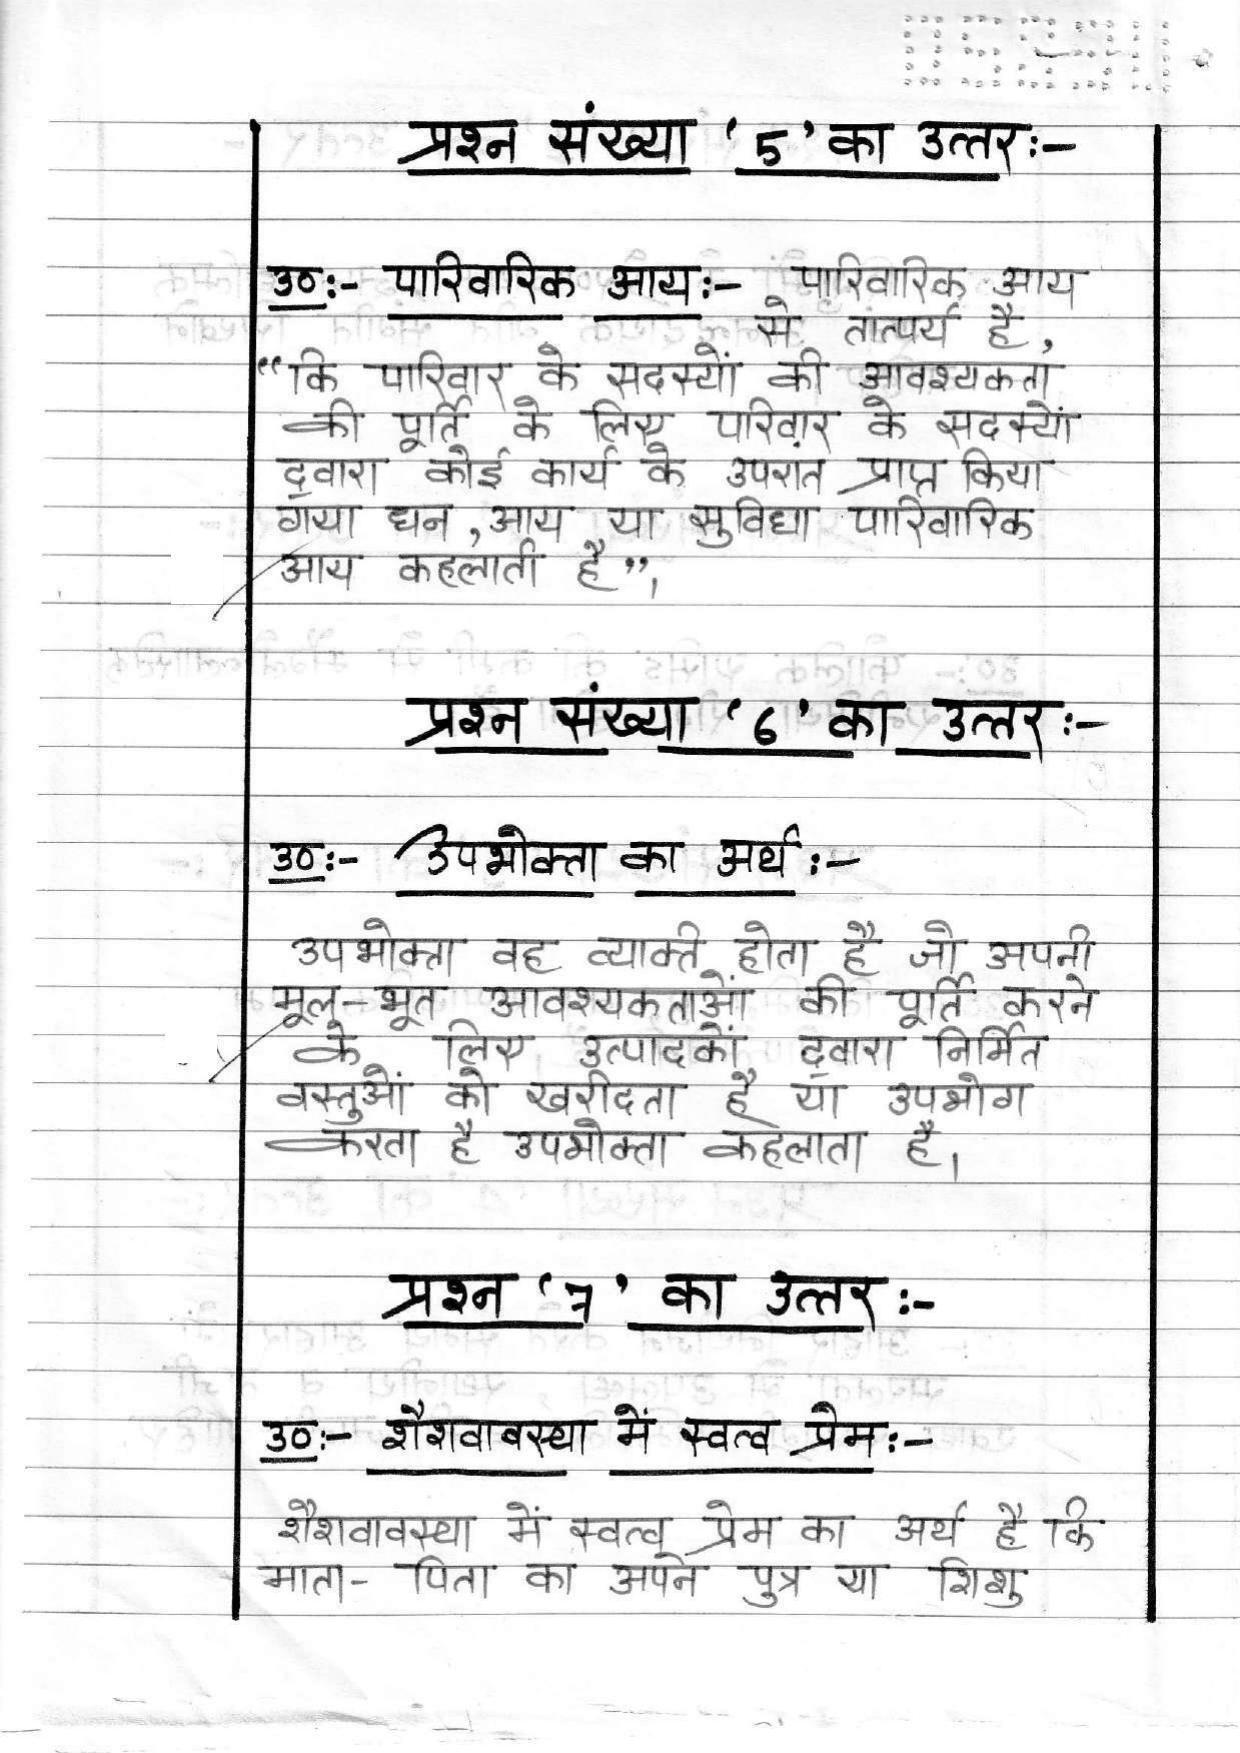 प्रश्न संख्या ‘5’ का उत्तर:-
उ०:- पारिवारिक आय:- पारिवारिक आय
से तात्पर्य है,
“कि परिवार के सदस्यों की आवश्यकता
की पूर्ति के लिए परिवार के सदस्यों
द्वारा कोई कार्य के उपरांत प्राप्त किया
गया धन, आय या सुविधा पारिवारिक
आय कहलाती है”।
प्रश्न संख्या ‘6’ का उत्तर:-
उ०:- उपभोक्ता का अर्थ:-
उपभोक्ता वह व्यक्ति होता है जो अपनी
मूल-भूत आवश्यकताओं की पूर्ति करने
के लिए उत्पादकों द्वारा निर्मित
वस्तुओं को खरीदता है या उपभोग
करता है उपभोक्ता कहलाता है।
प्रश्न ‘7’ का उत्तर:-
उ०:- शैशवावस्था में स्वत्व प्रेम:-
शैशवावस्था में स्वत्व प्रेम का अर्थ है कि
माता- पिता का अपने पुत्र या शिशु